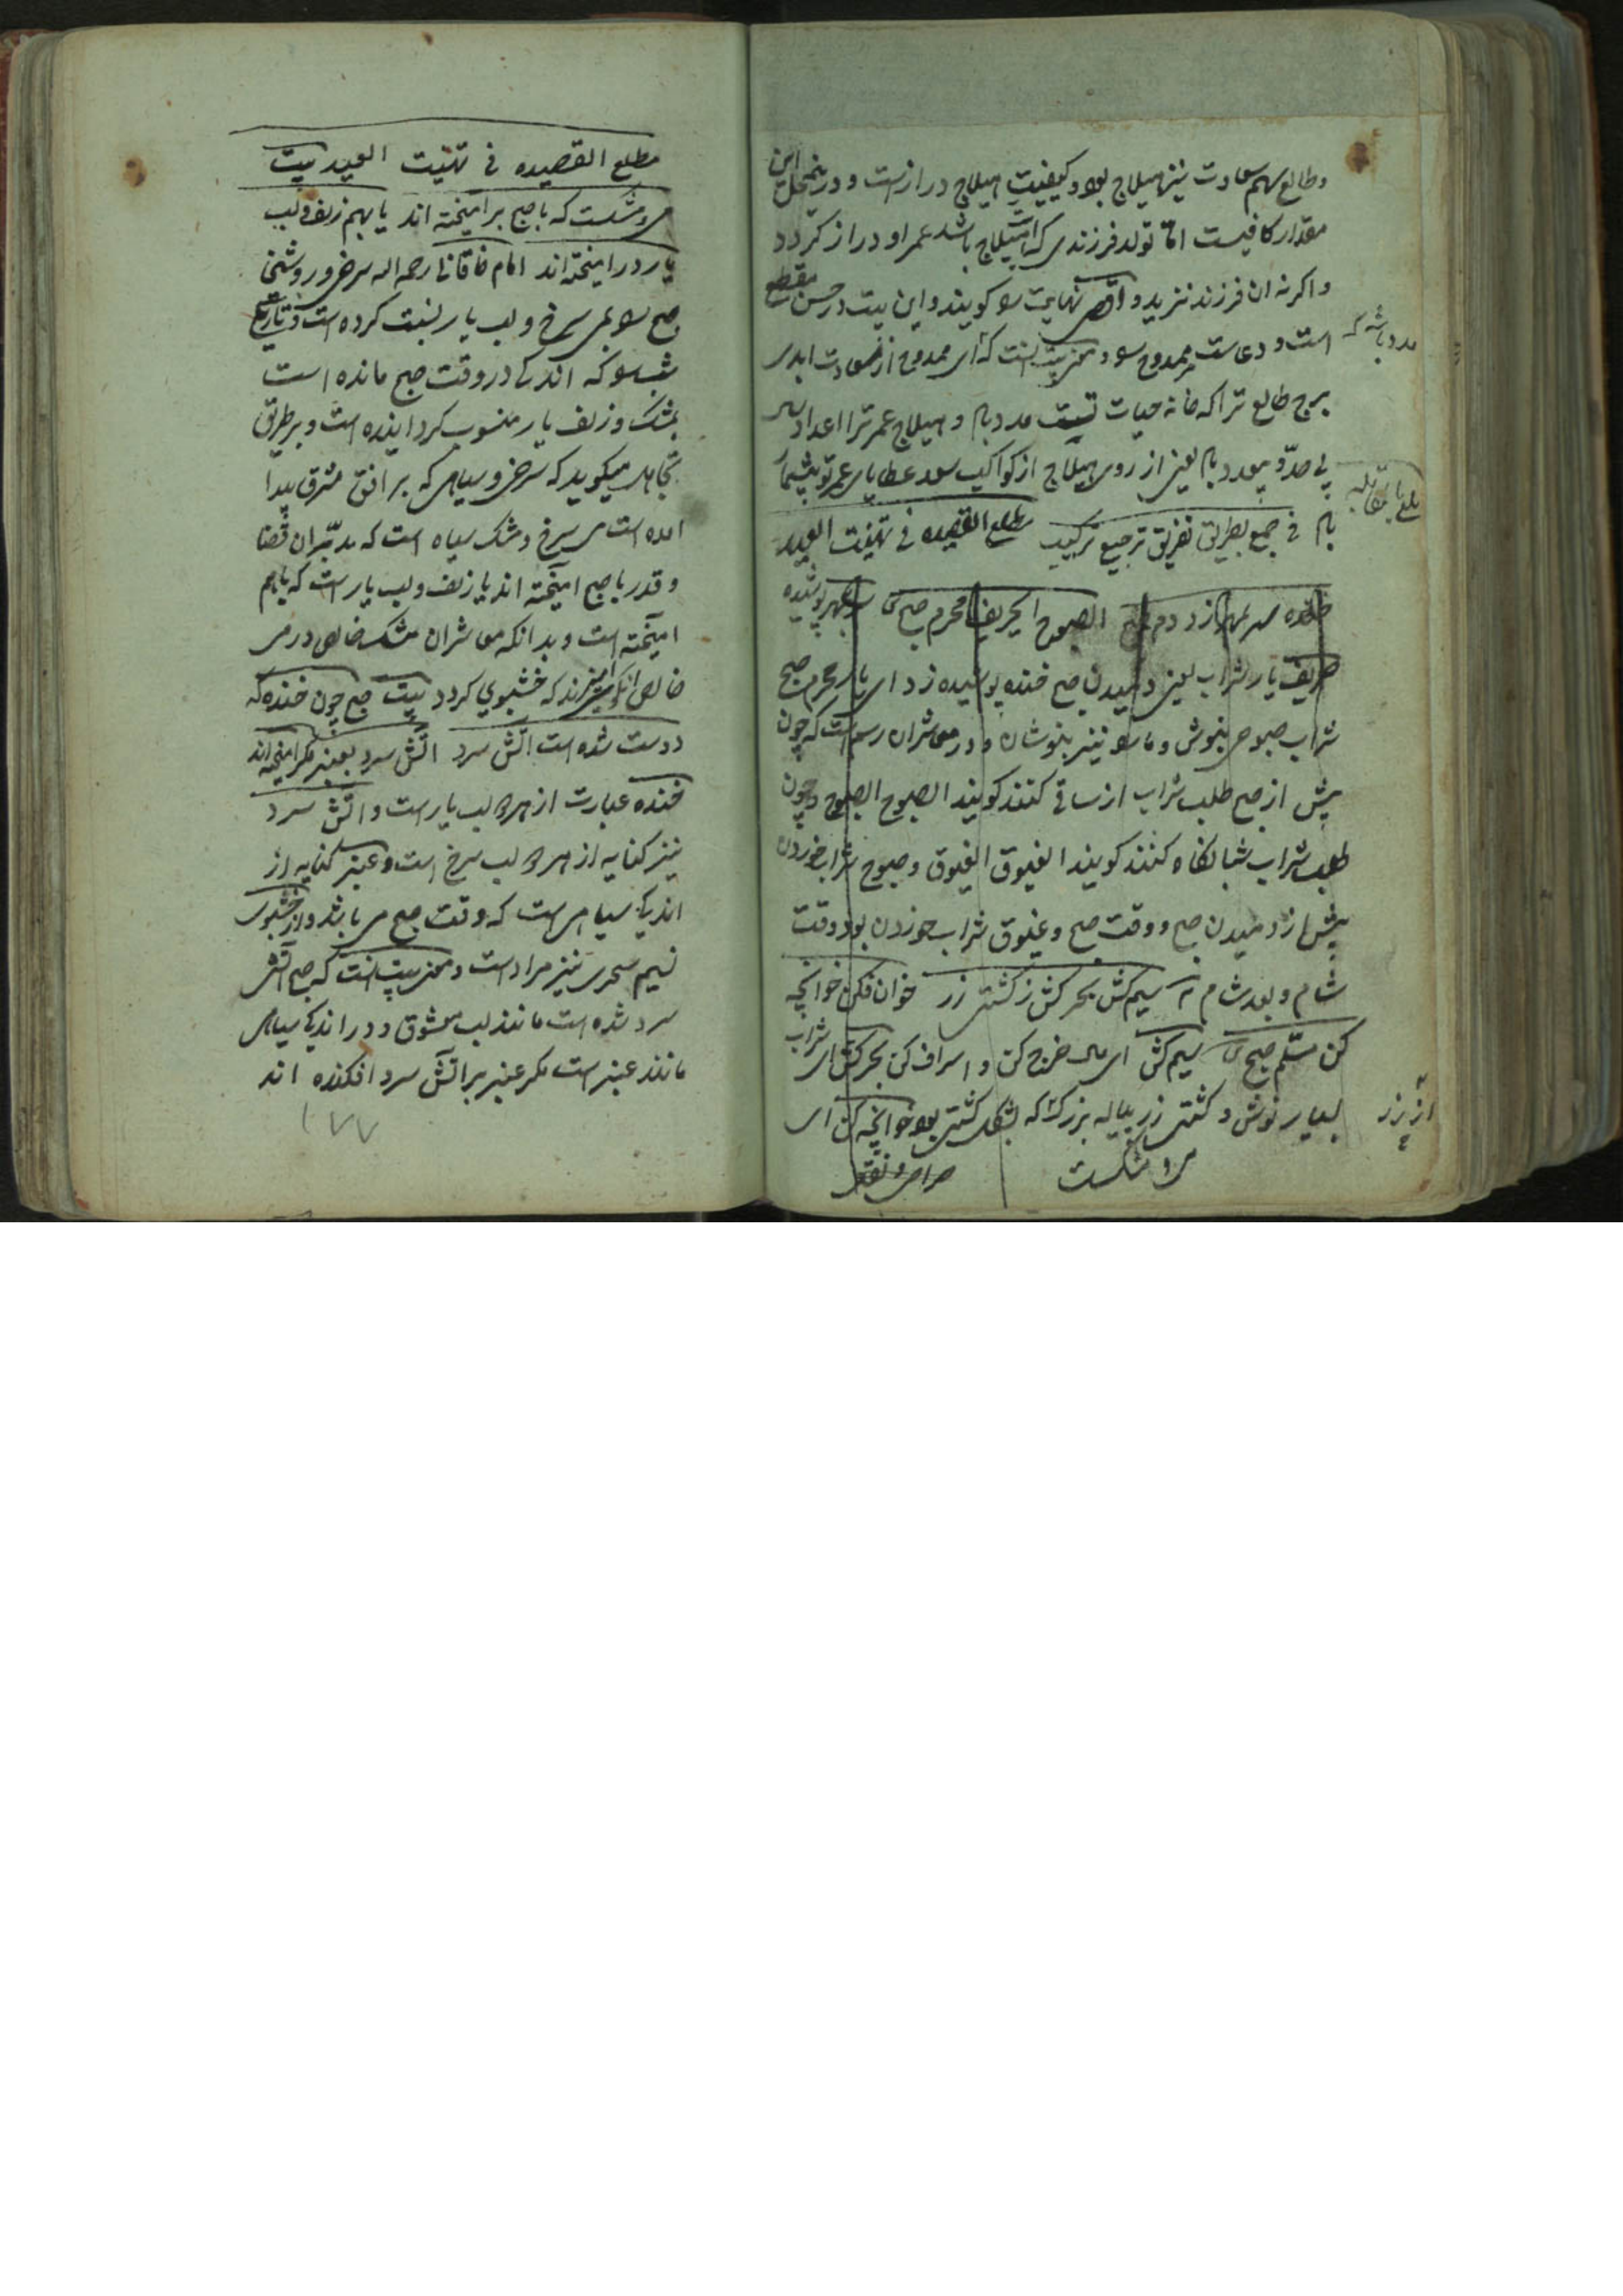 وطالع سهم سعادت نیز هیلاج بود و کیفیت هیلاج درازست و درینمحل این
مقدار کافیست اما تولد فرزندی که باشد عمر او دراز کردد
واکرنه ان فرزند نزید و نهایت کویند و این بیت در حسن مقطع
است و دعاست ممدوح و معنی بیت انست که ای ممدوح از سعادت ابدی
مدد باشد که
برج طالع ترا که خانه حیات تست مدد بام و هیلاج عمر ترا اعداد
بی حدّ و بیعدد بام یعنی از روی هیلاج از کواکب سعد عطایای عمر تو بیشمار
بلغ مقابله
بام فی جمیع بطریق تفریق ترجیع ترکیب مطلع القصیده فی تهنیت العید
خنده سر بمهر زد دم صبح الصبوح ای حریف محرم صبح سربمهر پوشیده
حریف یار شراب یعنی دمیدن صبح خنده پوشیده زد ای یار محرم صبح
شراب صبوحی بنوش و مارا نیز بنوشان و در معاشران رسم است که چون
پیش از صبح طلب شراب از ساقی کنند کویند الصبوح الصبوح و چون
طلب شراب شبانکاه کنند کویند الغبوق الغبوق و صبوح شراب خوردن
پیش از دمیدن صبح و وقت صبح و غبوق شراب خوردن بود وقت
شام و بعد شام سیم کش بحر کش ز کشتی زر خوان فکن خوانچه
کن مسلم صبح سیم کش ای مال خرج کن و اسراف کن بحر کش ای شراب
بسیار نوش و کشتی زر پیاله بزرک که بشکل کشتی بود خوانچه کن ای
از زر
می و مشکست
صراحی و نقل
مطلع القصیده فی تهنیت العید بیت
می و مشکست که با صبح برامیخته اند یا بهم زلف و لب
یار درامیخته اند امام خاقانی رحمه الله سرخی و روشنی
صبح را بمی سرخ و لب یار نسبت کرده است و تاریکی
شب را که اندکی در وقت صبح مانده است
بمشک و زلف یار منسوب کردانیده است و بر طریق
تجاهل میکوید که سرخی و سیاهی که بر افق مشرق پیدا
امده است می سرخ و مشک سیاه است که مدبّران قضا
و قدر با صبح امیخته اند یا زلف و لب یار است که باهم
امیخته است و بدانکه معاشران مشک خالص در می
خالص انکوری امیزند که خشبوی کردد بیت صبح چون خنده که
دوست شده است اتش سرد اتش سرد بعنبر مکر امیخته اند
خنده عبارت از لب یار است و اتش سرد
نیز کنایه از لب سرخ است و عنبر کنایه از
اندک سیاهی است که وقت صبح می باشد و از خشبوی
نسیم سحری نیز مراد است و معنی بیت انست که صبح اتش
سرد شده است مانند لب معشوق و در اندک سیاهی
مانند عنبر است مکر عنبر بر اتش سرد افکنده اند
۱۷۷